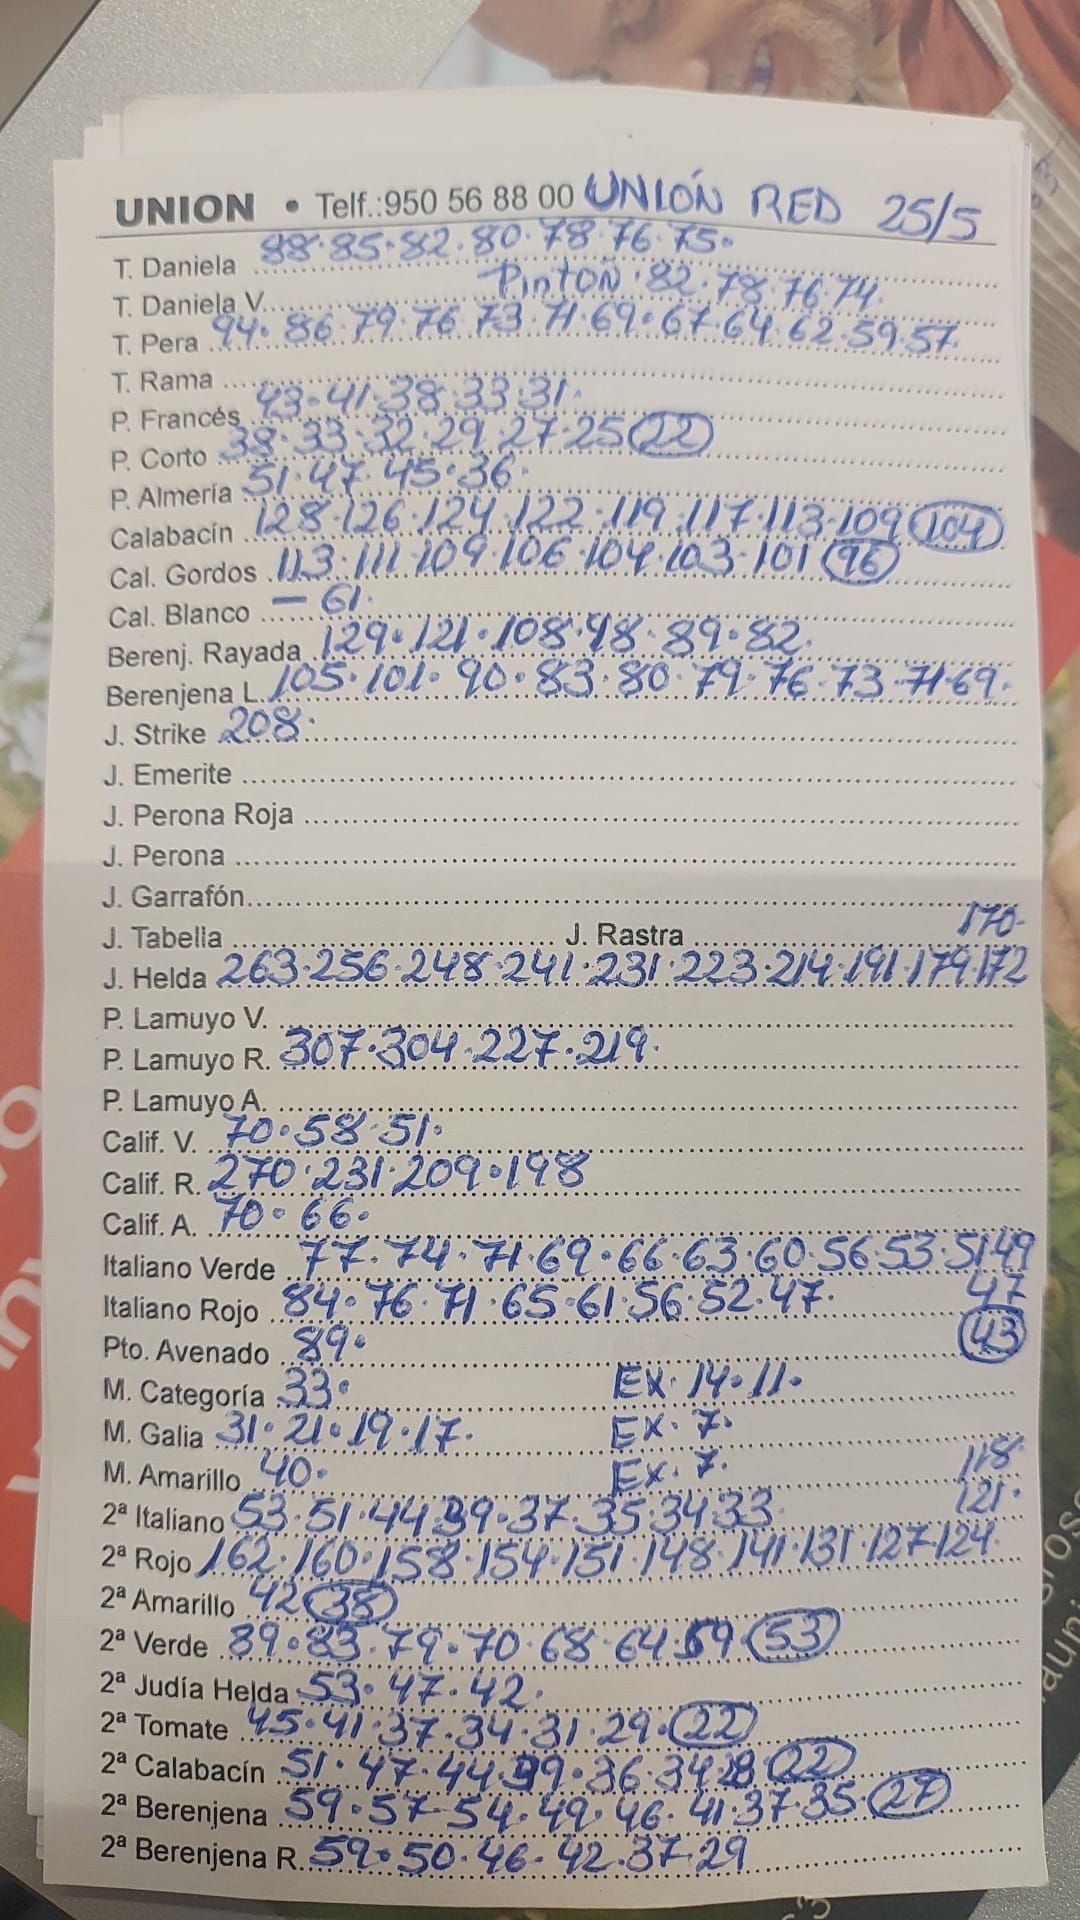 UNION • Telf.:950 56 88 00 UNIÓN RED 25/5
T. Daniela 88·85·82·80·78·76·75·
T. Daniela V. Pinton·82·78·76·74·
T. Pera 94·86·79·76·73·71·69·67·64·62·59·57·
T. Rama
P. Francés 43·41·38·33·31·
P. Corto 38·33·32·29·27·25 22
P. Almería 51·47·45·36·
Calabacín 128·126·124·122·119·117·113·109 104
Cal. Gordos 113·111·109·106·104·103·101 96
Cal. Blanco — 61·
Berenj. Rayada 129·121·108·98·89·82·
Berenjena L. 105·101·90·83·80·79·76·73·71·69·
J. Strike 208·
J. Emerite
J. Perona Roja
J. Perona
J. Garrafón
J. Tabella J. Rastra 170·
J. Helda 263·256·248·241·231·223·214·191·179·172
P. Lamuyo V.
P. Lamuyo R. 307·304·227·219·
P. Lamuyo A.
Calif. V. 70·58·51·
Calif. R. 270·231·209·198
Calif. A. 70·66·
Italiano Verde 77·74·71·69·66·63·60·56·53·51·49
47
Italiano Rojo 84·76·71·65·61·56·52·47·
43
Pto. Avenado 89·
M. Categoría 33· Ex·14·11·
M. Galia 31·21·19·17· Ex·7·
M. Amarillo 40· Ex·7· 118·
121·
2ª Italiano 53·51·44·39·37·35·34·33·
2ª Rojo 162·160·158·154·151·148·141·131·127·124·
2ª Amarillo 42 38
2ª Verde 89·83·79·70·68·64·59 53
2ª Judía Helda 53·47·42·
2ª Tomate 45·41·37·34·31·29· 22
2ª Calabacín 51·47·44·39·36·34·28 22
2ª Berenjena 59·57·54·49·46·41·37·35· 27
2ª Berenjena R. 59·50·46·42·37·29